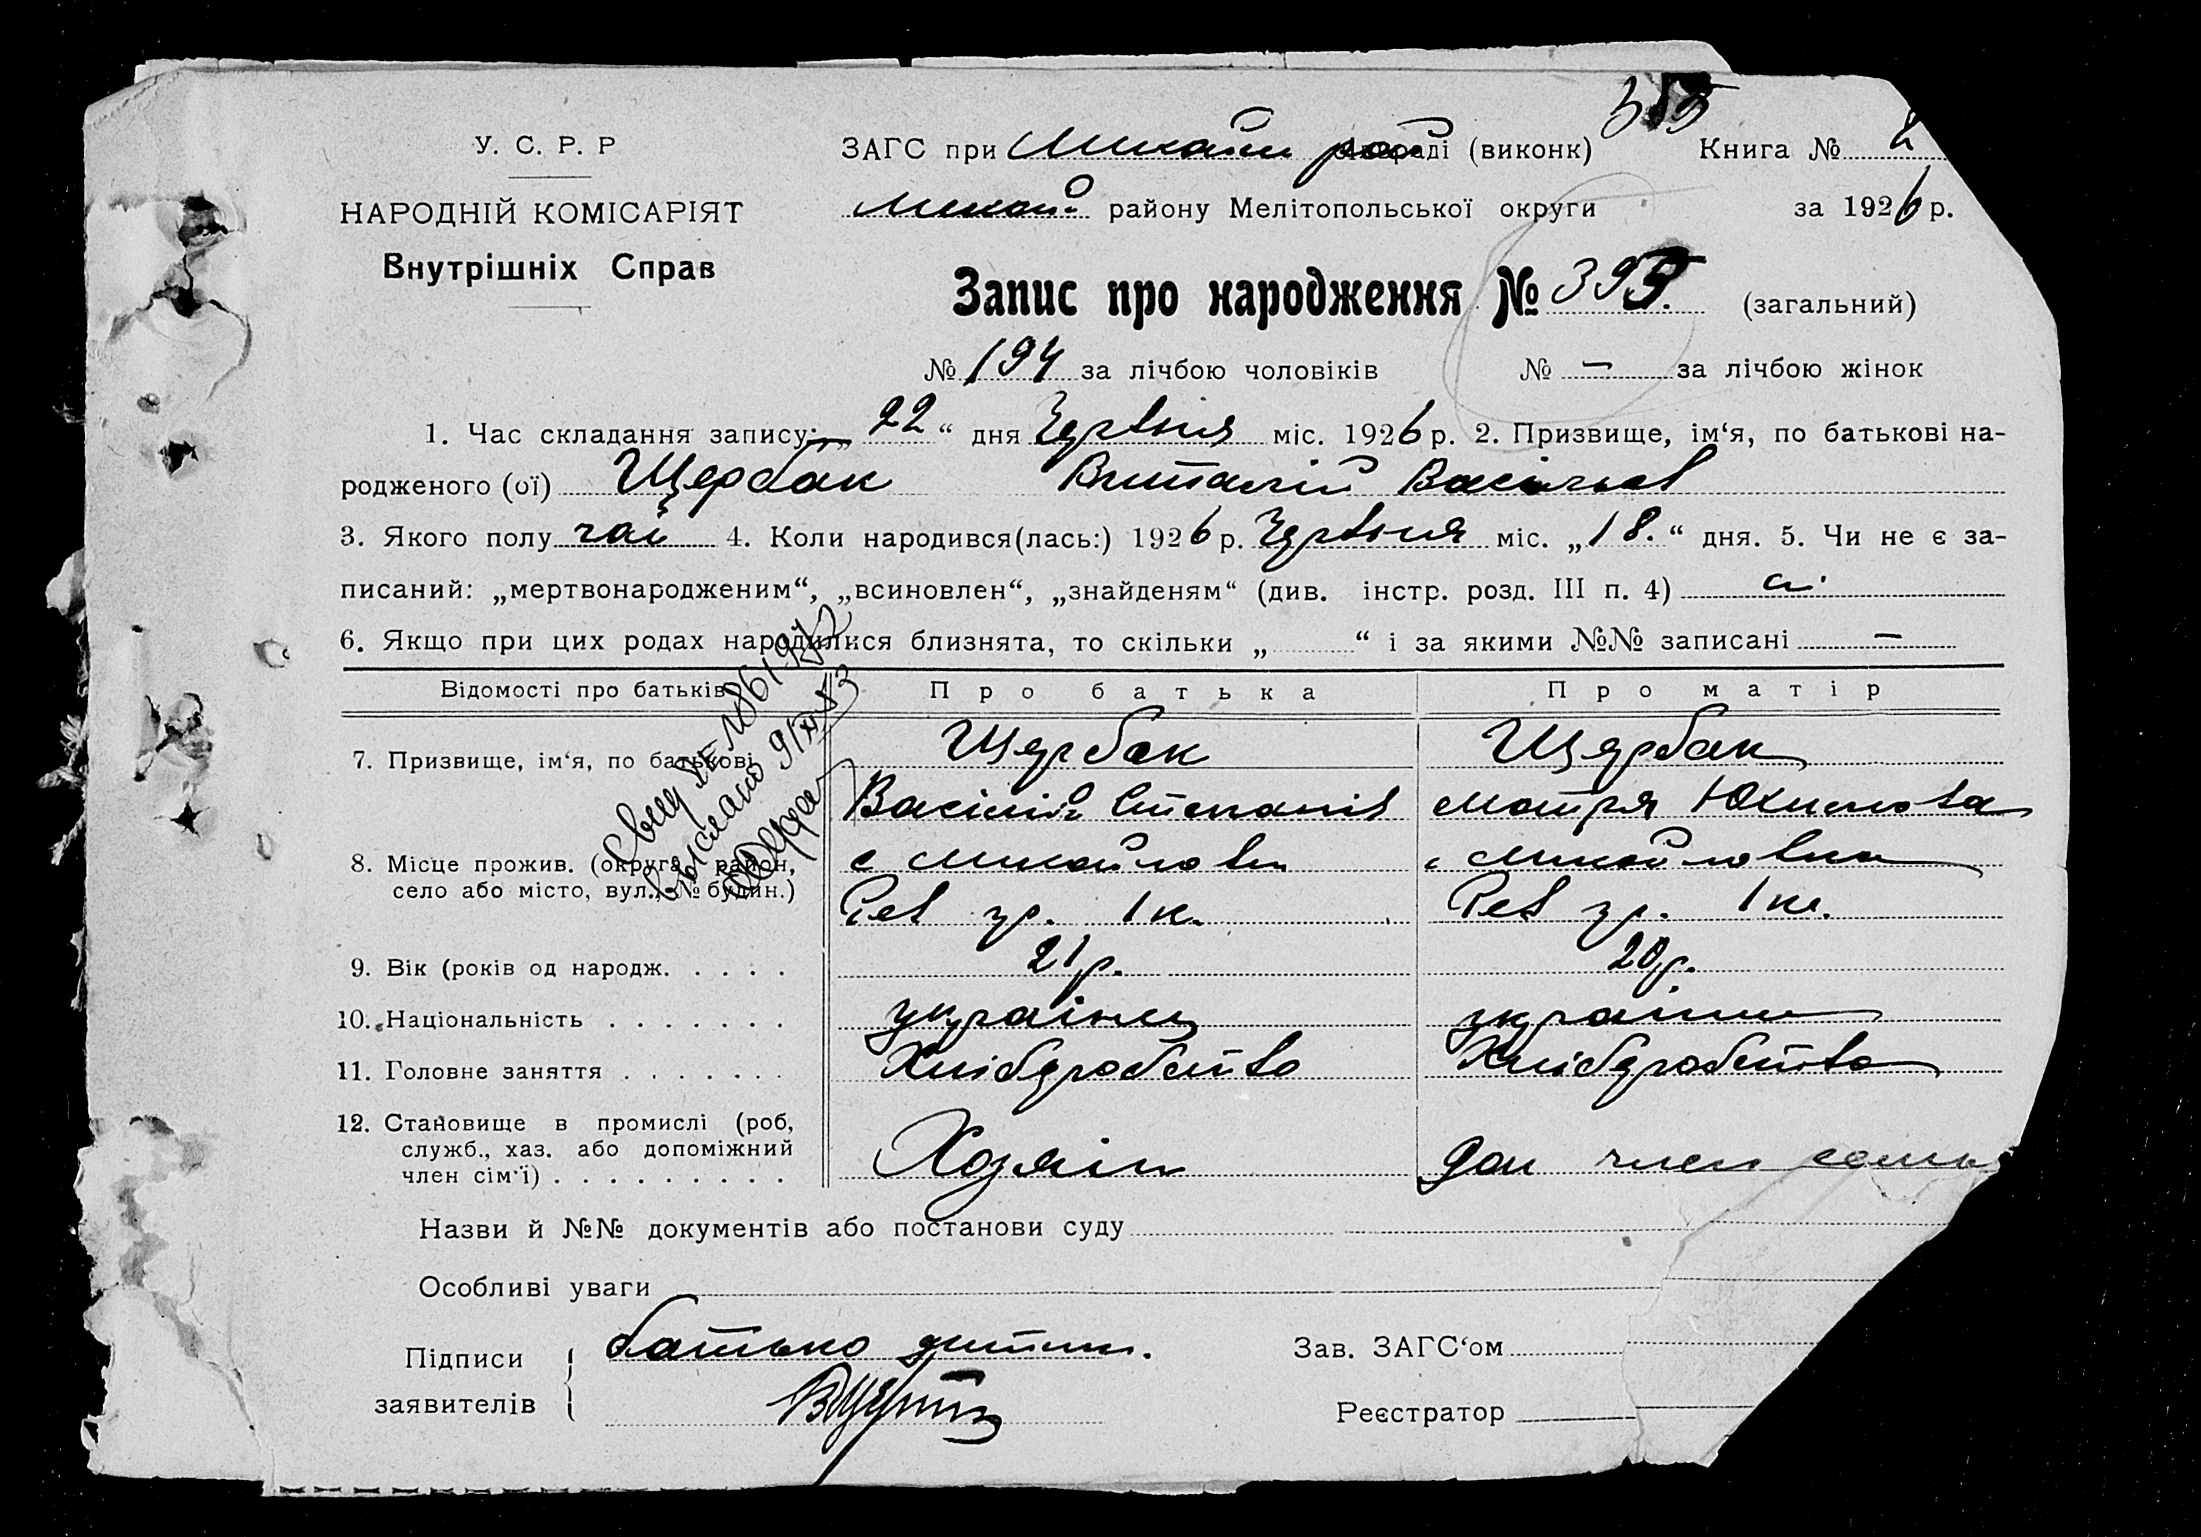 355
У. С. Р. Р
ЗАГС при Михайл рай сельраді (виконк) Книга №
НАРОДНІЙ КОМІСАРІЯТ
Михай. району Мелітопольської округи за 1926 р.
Внутрішніх Справ
Запис про народження № 395. (загальний)
№ 194 за лічбою чоловіків № — за лічбою жінок
1. Час складання запису: „ 22 “ дня Червня міс. 1926 р. 2. Призвище, ім‘я, по батькові на-
родженого (ої) Щербак Виталій Васільев
3. Якого полу чол 4. Коли народився(лась:) 1926 р. Червня міс. „18.“ дня. 5. Чи не є за-
писаний: „мертвонародженим“, „всиновлен“, „знайденям“ (див. інстр. розд. III п. 4)
6. Якщо при цих родах народилися близнята, то скільки „ “ і за якими №№ записані —
Відомості про батьків Про батька Про матір
7. Призвище, ім‘я, по батькові Щербак Щербак
Васілій Степанів Мотря Юхимова
8. Місце прожив. (округа, район, с Михайловка с Михайловка
село або місто, вул., № будин.) Рев гр. 1 к. Рев гр. 1 к.
9. Вік (років од народж. . . . . 21 р. 20 р.
10. Національність . . . . . . . українц українка
11. Головне заняття . . . . . . . Хлібдробство Хлібдробство
12. Становище в промислі (роб,
служб., хаз. або допоміжний Хозяін доп член семьи
член сім‘ї) . . . . . . . . .
Свид
выслано 9/XII
Назви й №№ документів або постанови суду
Особливі уваги
Підписи батько дитини. Зав. ЗАГС‘ом
заявителів Реєстратор